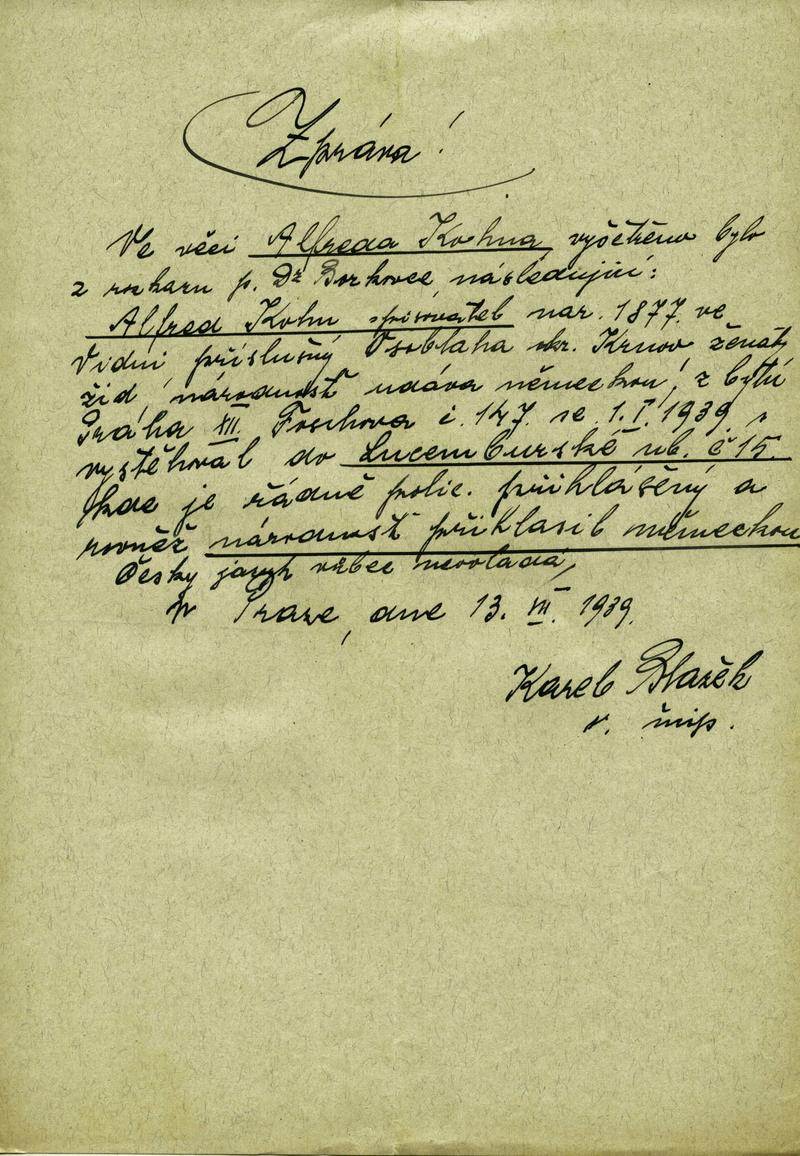 Zpráva!
Ve věci Alfreda Kohna vyšetřeno bylo
z rozkazu p. Dr Borkovce následující:
Alfred Kohn spisovatel nar. 1877. ve
Vídni příslušný Osoblaha okr. Krnov ženatý
žid, národnost udává německou, z bytu
Praha XII. Fochova č. 147. se 1.I.1939.
vystěhoval do Lucemburské ul. č 15.
kde je řádně polic. přihlášený a
rovněž národnost přiklasil německou
Česky jazyk vůbec neovládá,
V Praze, dne 13. VII. 1939.
Karel Blažek